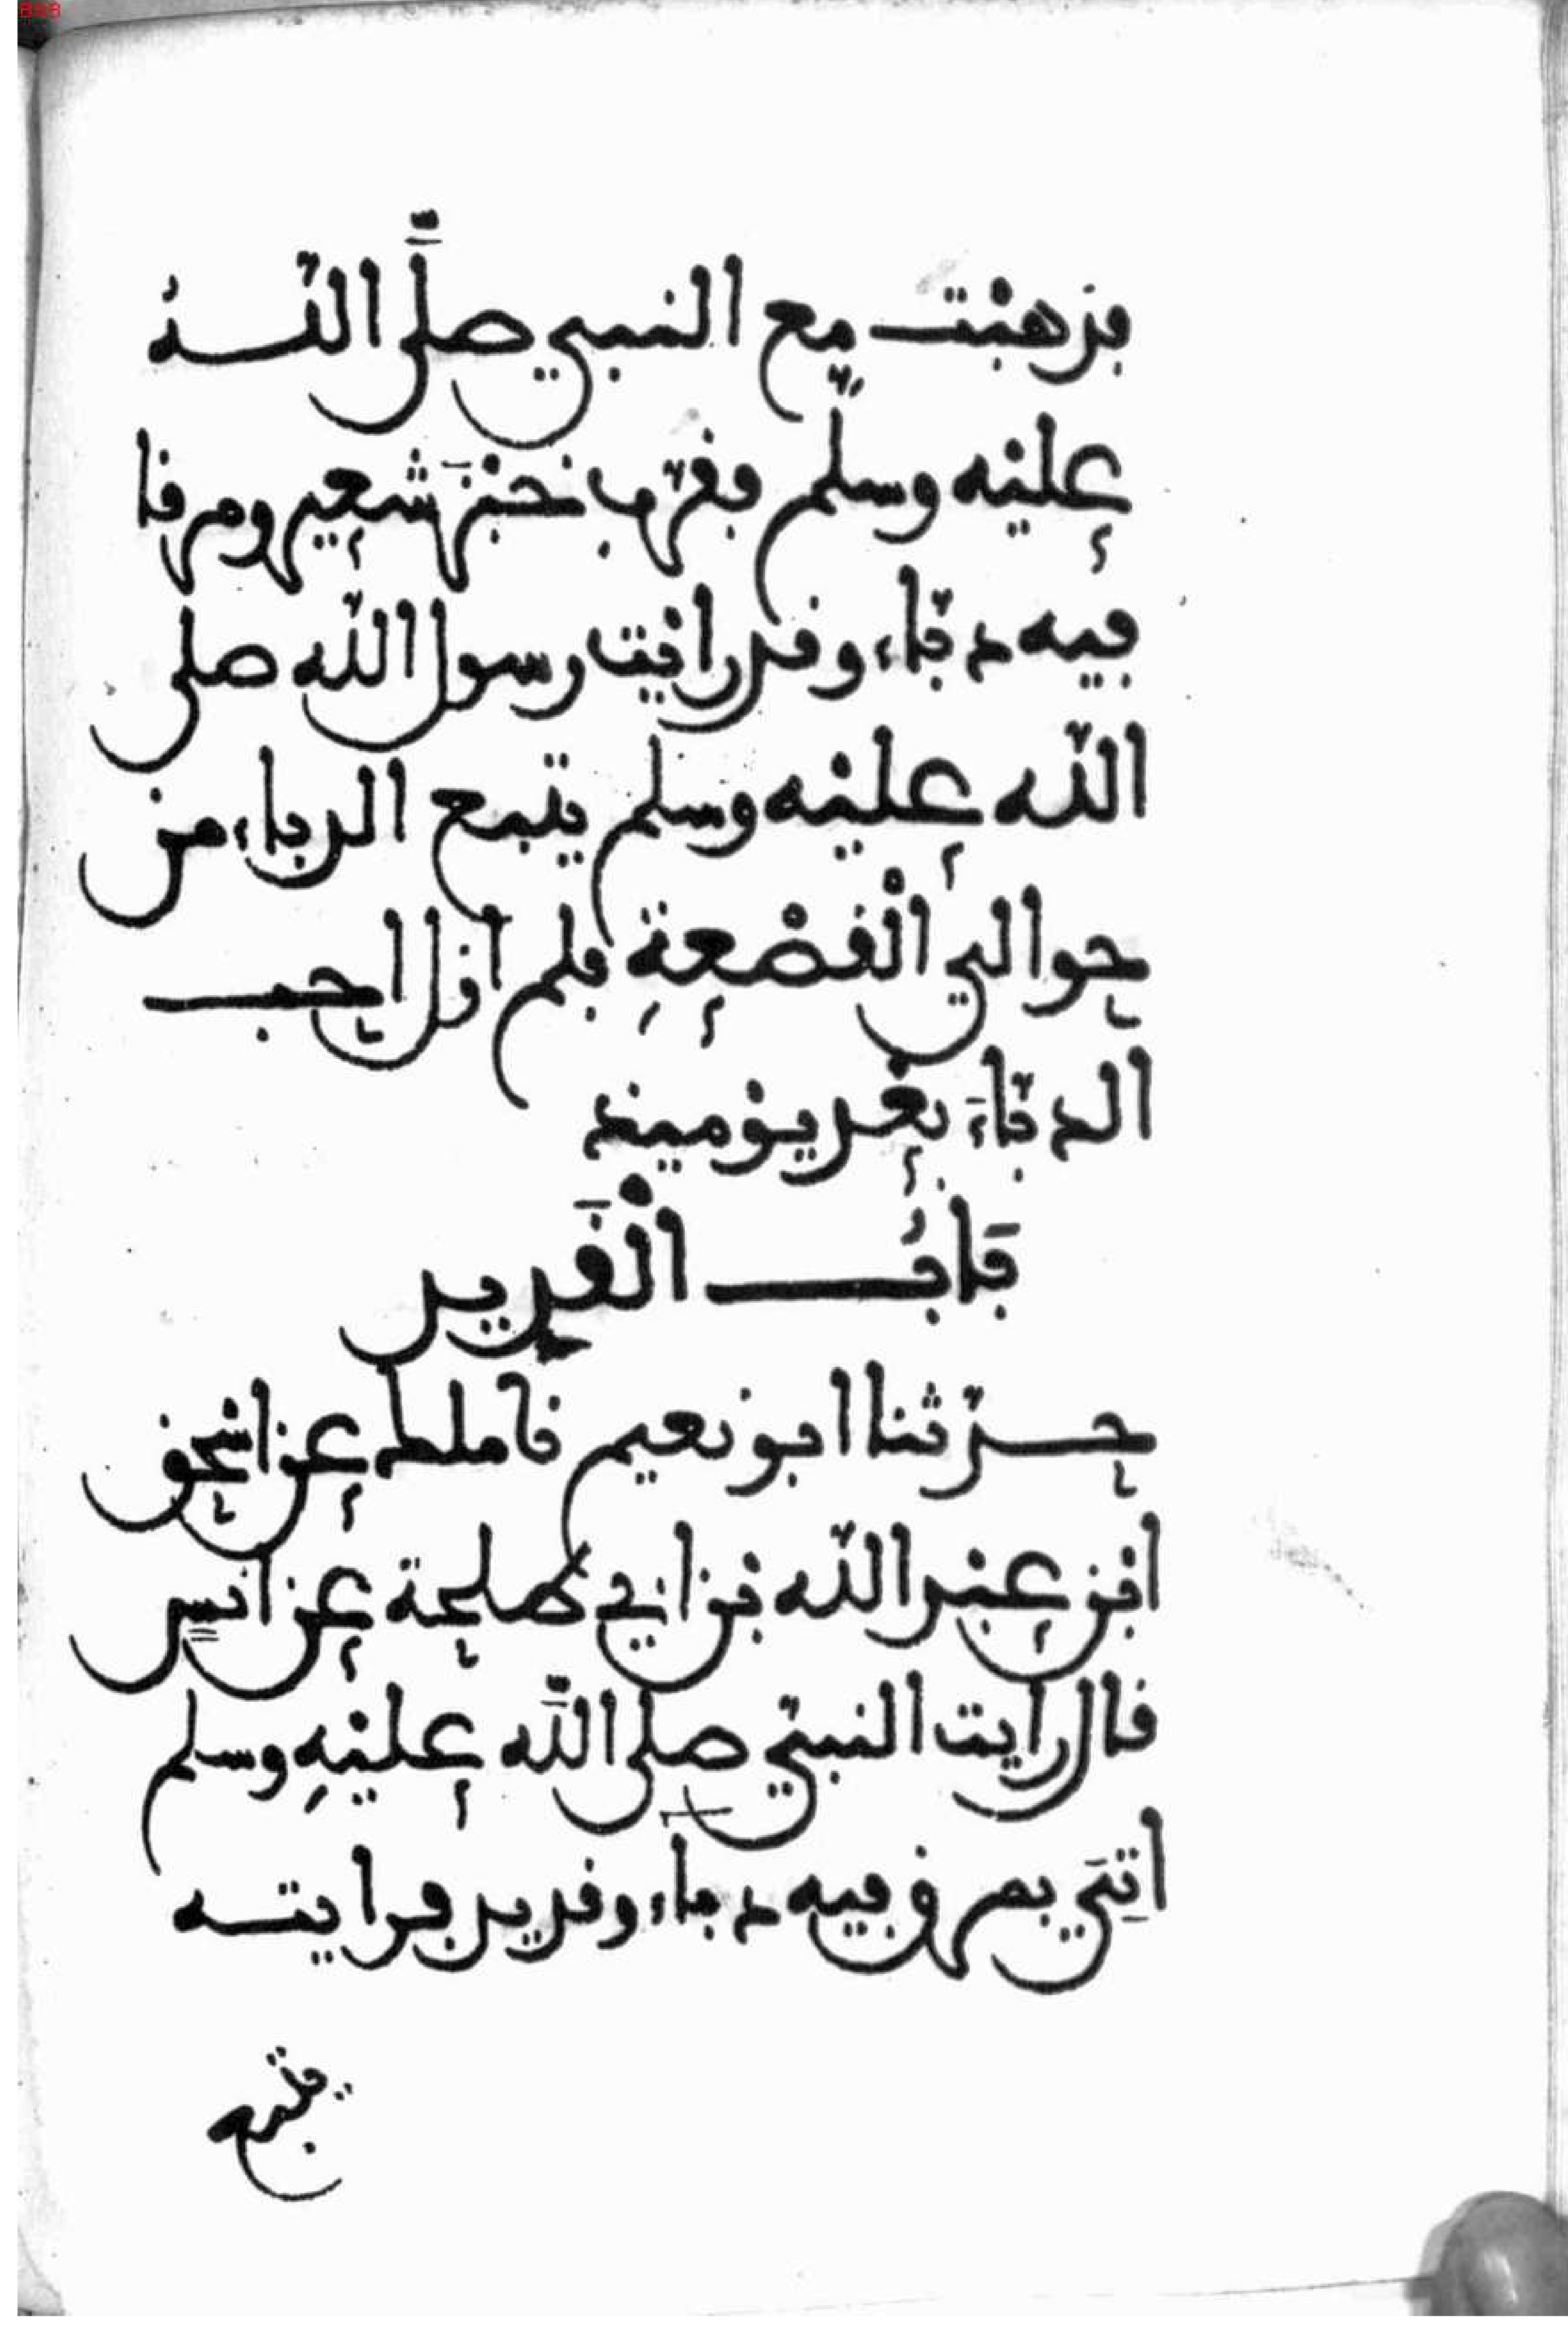 فذهبت مع النبي صلى الله
عليه وسلم فقرب خبز شعير ومرقا
فيه دباء وقد رايت رسول الله صلى
الله عليه وسلم يتبع الدباء من
حوالي القصعة فلم ازل احب
الدباء بعد يوميذ
باب القديد
حدثنا ابو نعيم نا ملك عن اسحق
ابن عبد الله بن ابي طلحة عن انس
قال رايت النبي صلى الله عليه وسلم
اتي بمرق فيه دباء وقديد فرايته
يتبع